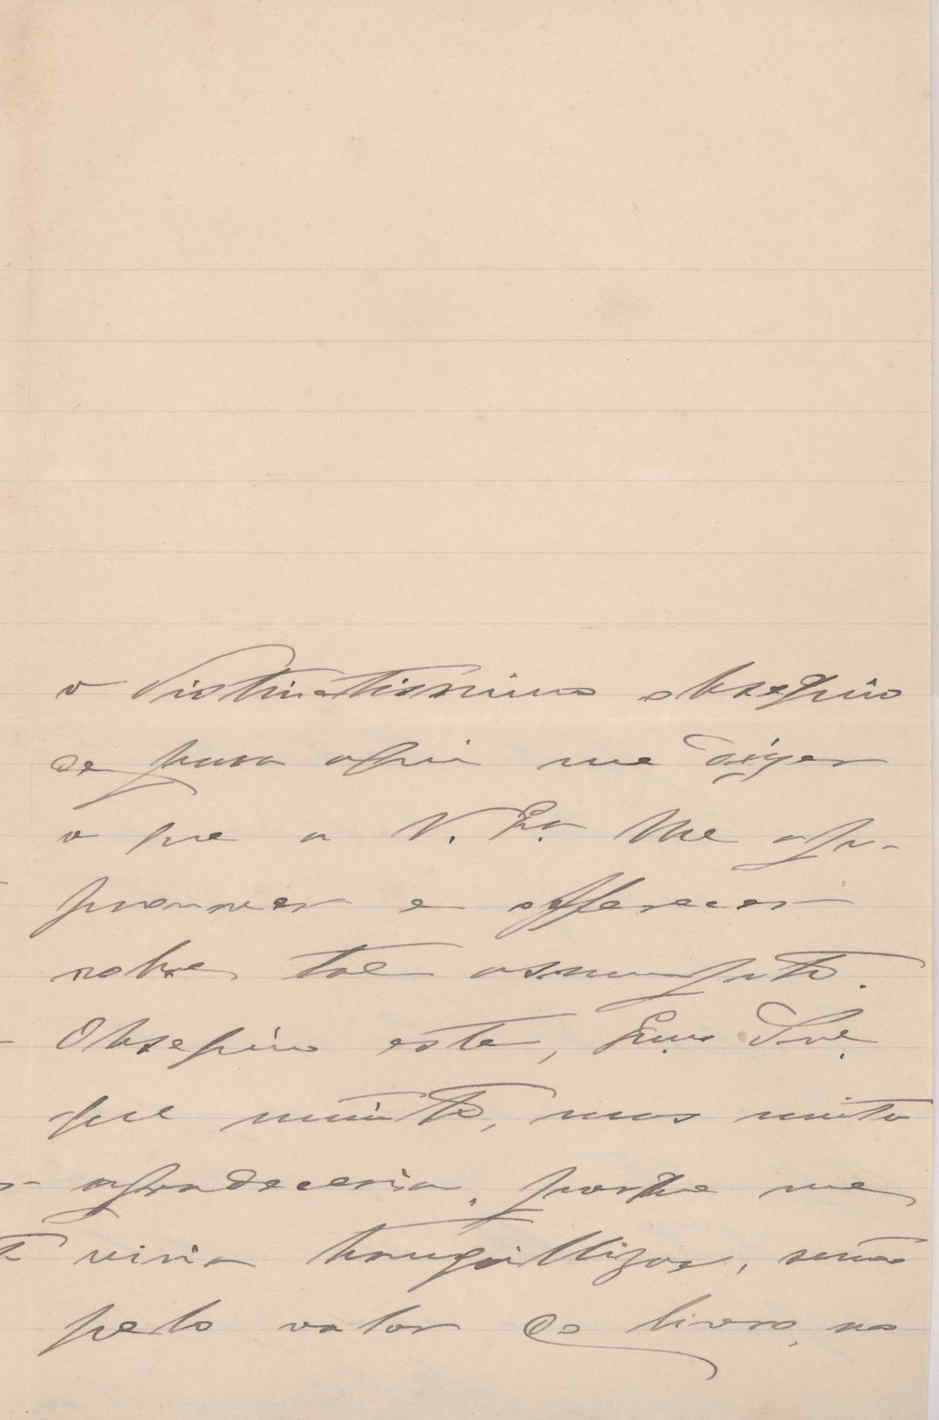 o distinctissimo obsequio
de para aqui me dizer
o que a V. Ex.ª lhe
e offerecer
sobre tal assumpto.
Obsequio este, Exmo Snr.
que muito, mas muito
agradeceria, porque me
viria tranquillizar, senão
pelo valor do livro, no